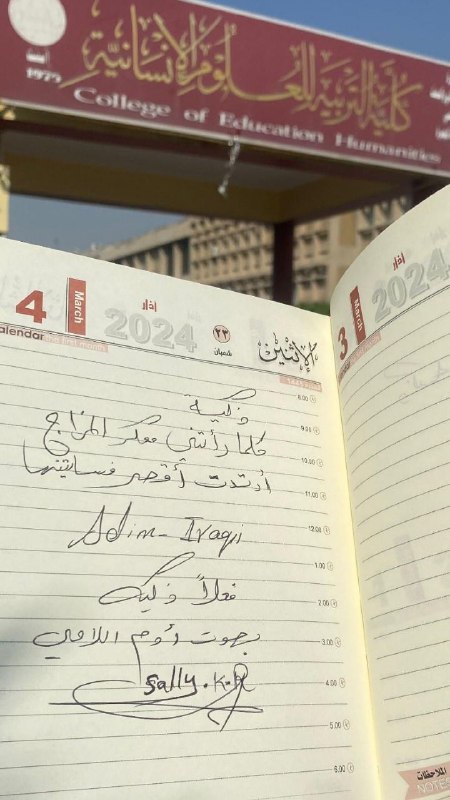 كلية التربية للعلوم الإنسانية
1975
College of Education Humanities
4
March
اذار
2024
calendar
٢٣
شعبان
الإثنين
3
اذار
2024
8.00
9.00
10.00
11.00
12.00
1.00
2.00
3.00
4.00
5.00
6.00
ذكية
كلما رأتني معكر المزاج
أرتدت أقصر فساتينها
Adim - Iraqi
فعلاً ذكية
بصوت أوم اللامي
Sally.K.R
الملاحظات
NOTES